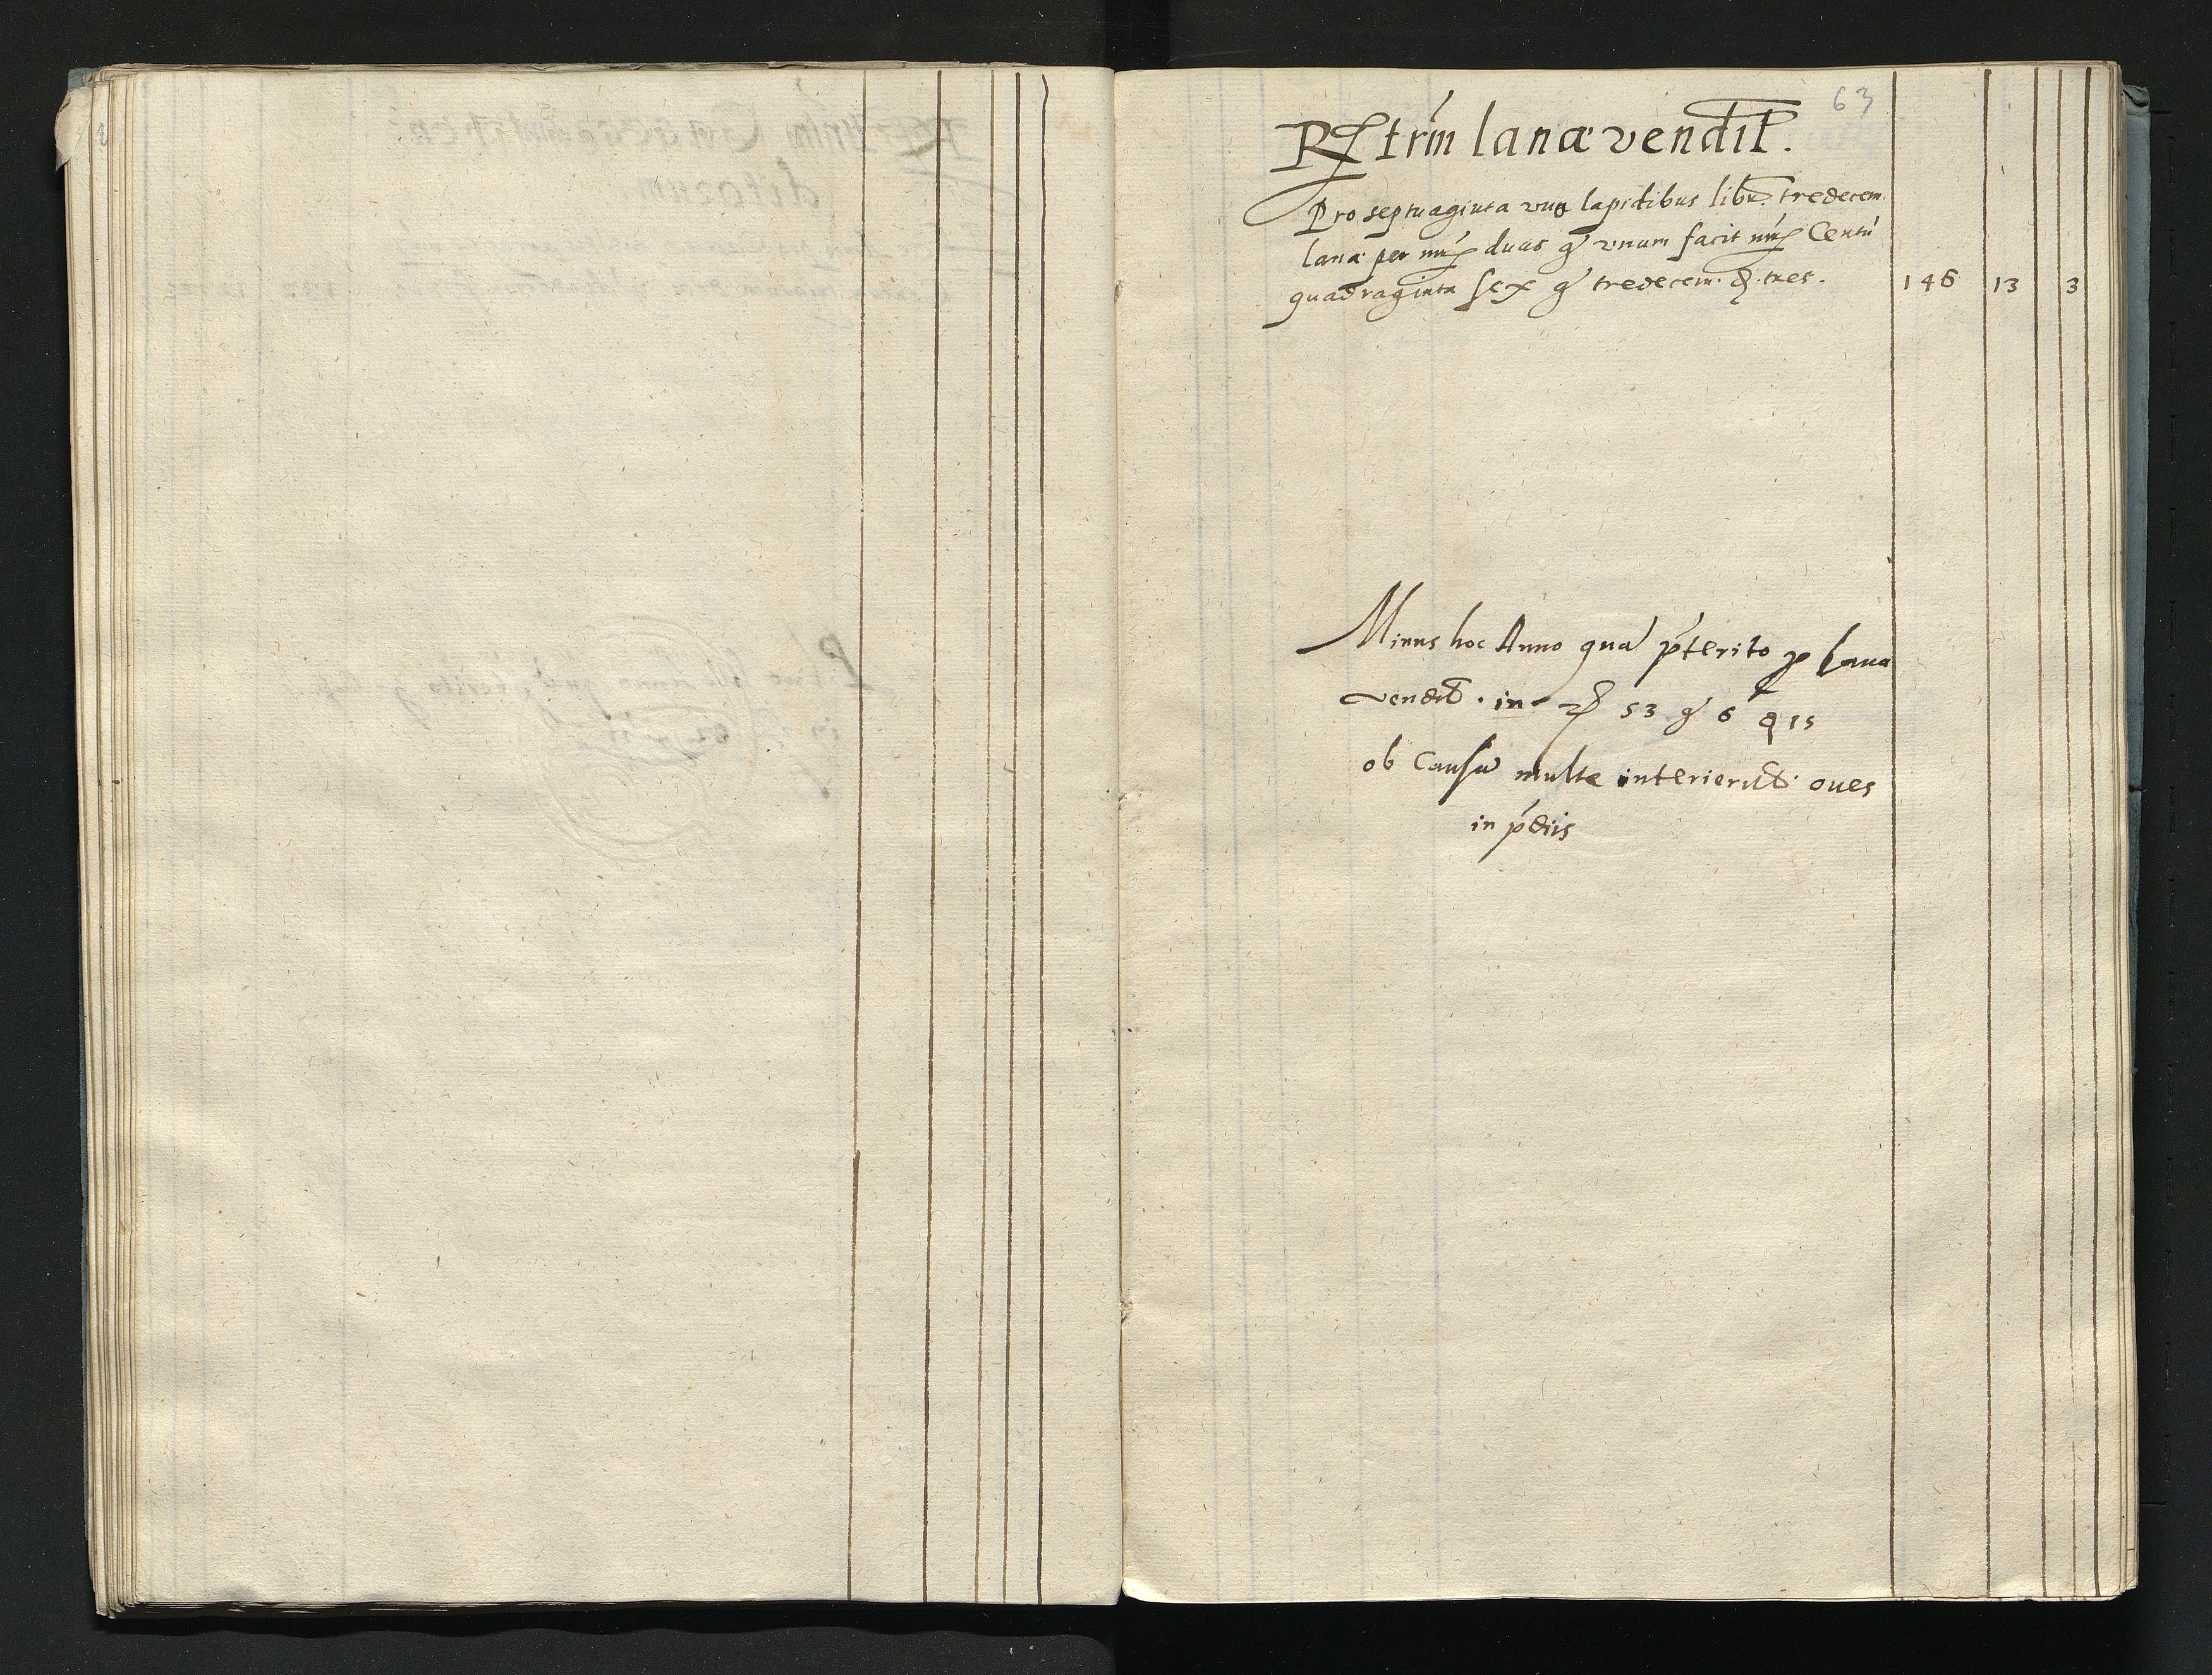 63
Rɢtrm̃ lanæ vendit̃.
Pro septuaginta vna lapidibus libr. tredecem.
lanæ per mrɢ duas gr̃ vnum facit mrɢ Centũ
quadraginta sex gr̃ tredecem. ₰. tres. 146 13 3
Minus hoc Anno quã p̃terito p Lana
vendit̃. in mrɢ 53 gr̃ 6 ₰ 15
ob Causã multe interierũt. oues
in p̃diis